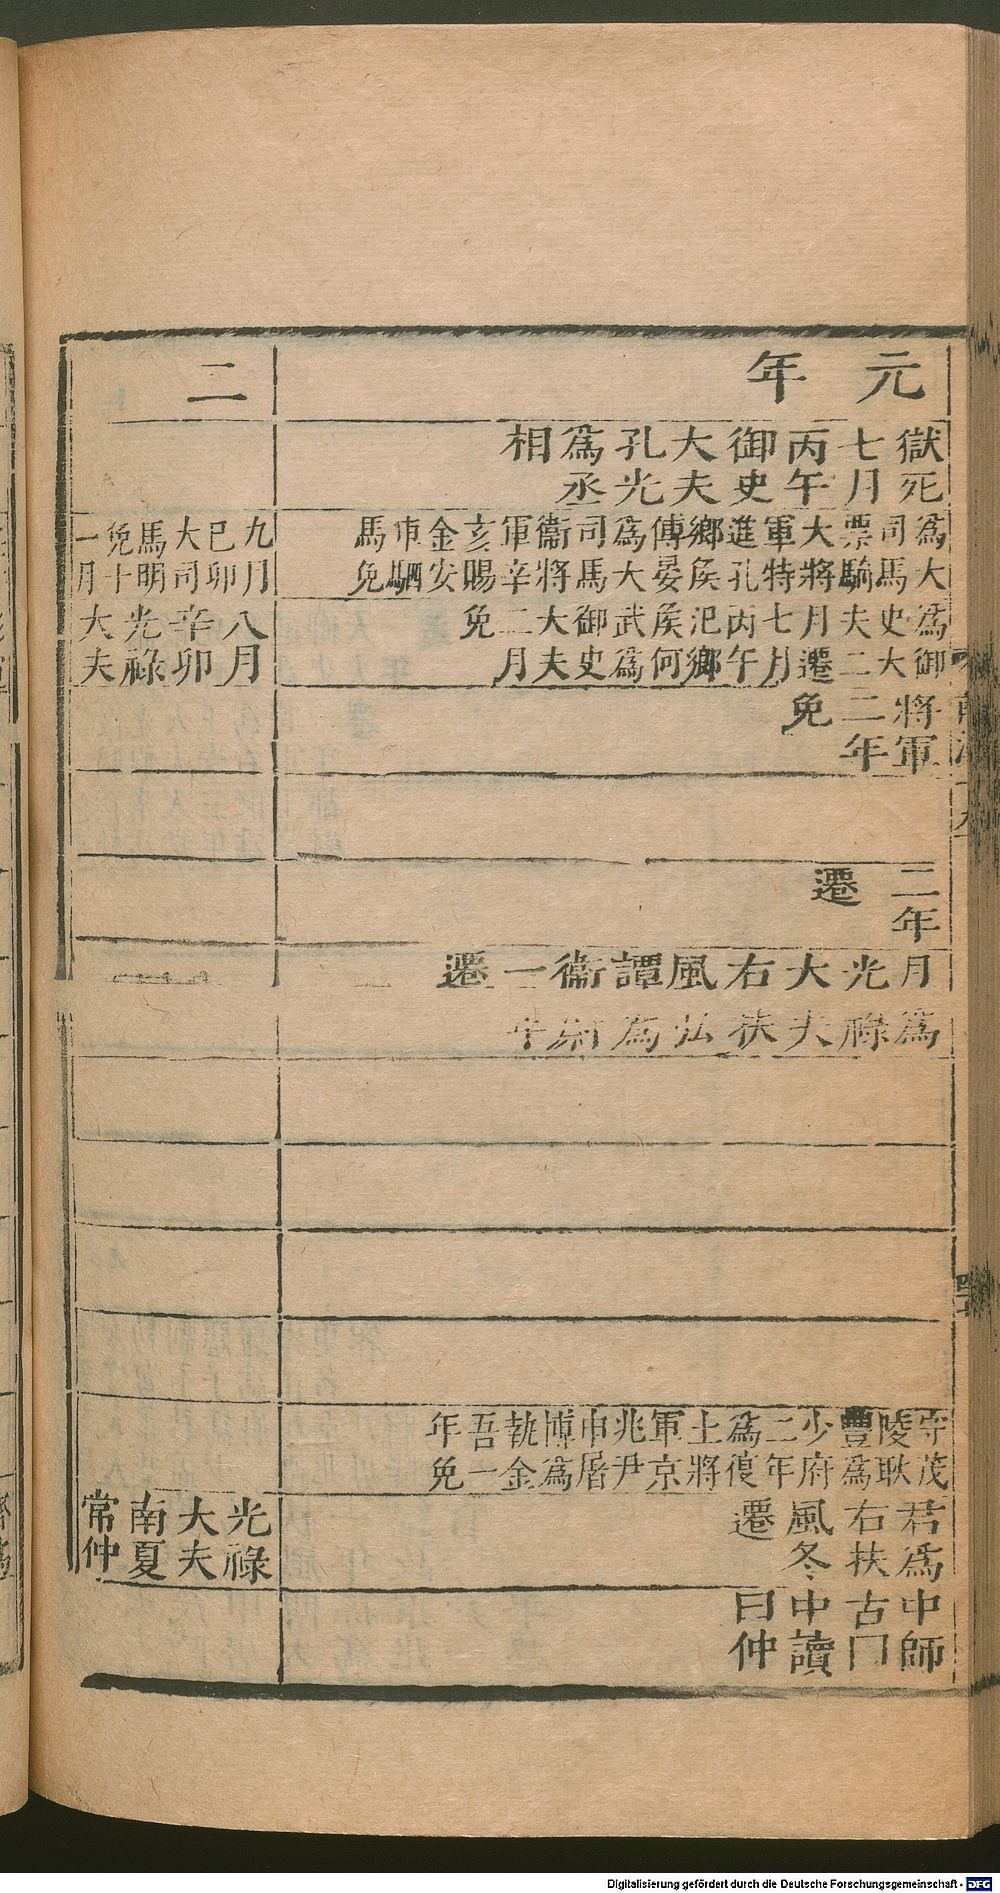 元年
獄死七月丙午御史大夫孔光爲丞相
爲大司馬票騎大將軍特進孔鄉侯傅晏爲大司馬衞將軍辛亥賜金安車駟馬免
爲御史大夫二月遷七月丙午氾鄉侯何武爲御史大夫二月免
將軍二年免
二年遷
月爲光祿大夫右扶風弘譚爲衞尉一年遷
守茂陵耿豐爲少府二年爲復土將軍京兆尹申屠博爲執金吾一年免
君爲右扶風冬遷
中師古曰中讀曰仲
二
九月巳卯大司馬明免十一月
八月辛卯光祿大夫
光祿大夫南夏常仲
Digitalisierung gefördert durch die Deutsche Forschungsgemeinschaft - DFG